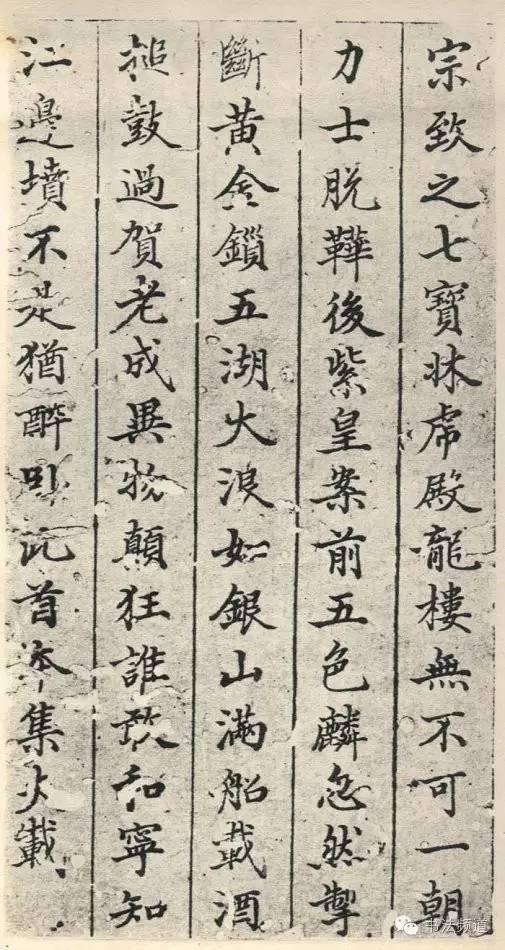 宗致之七寶牀虎殿龍樓無不可一朝
力士脫鞾後紫皇案前五色麟忽然掣
斷黃金鎖五湖大浪如銀山滿船載酒
搥鼓過賀老成異物顛狂誰敢和寧知
江邊墳不是猶醉卧此首本集失載
书法频道